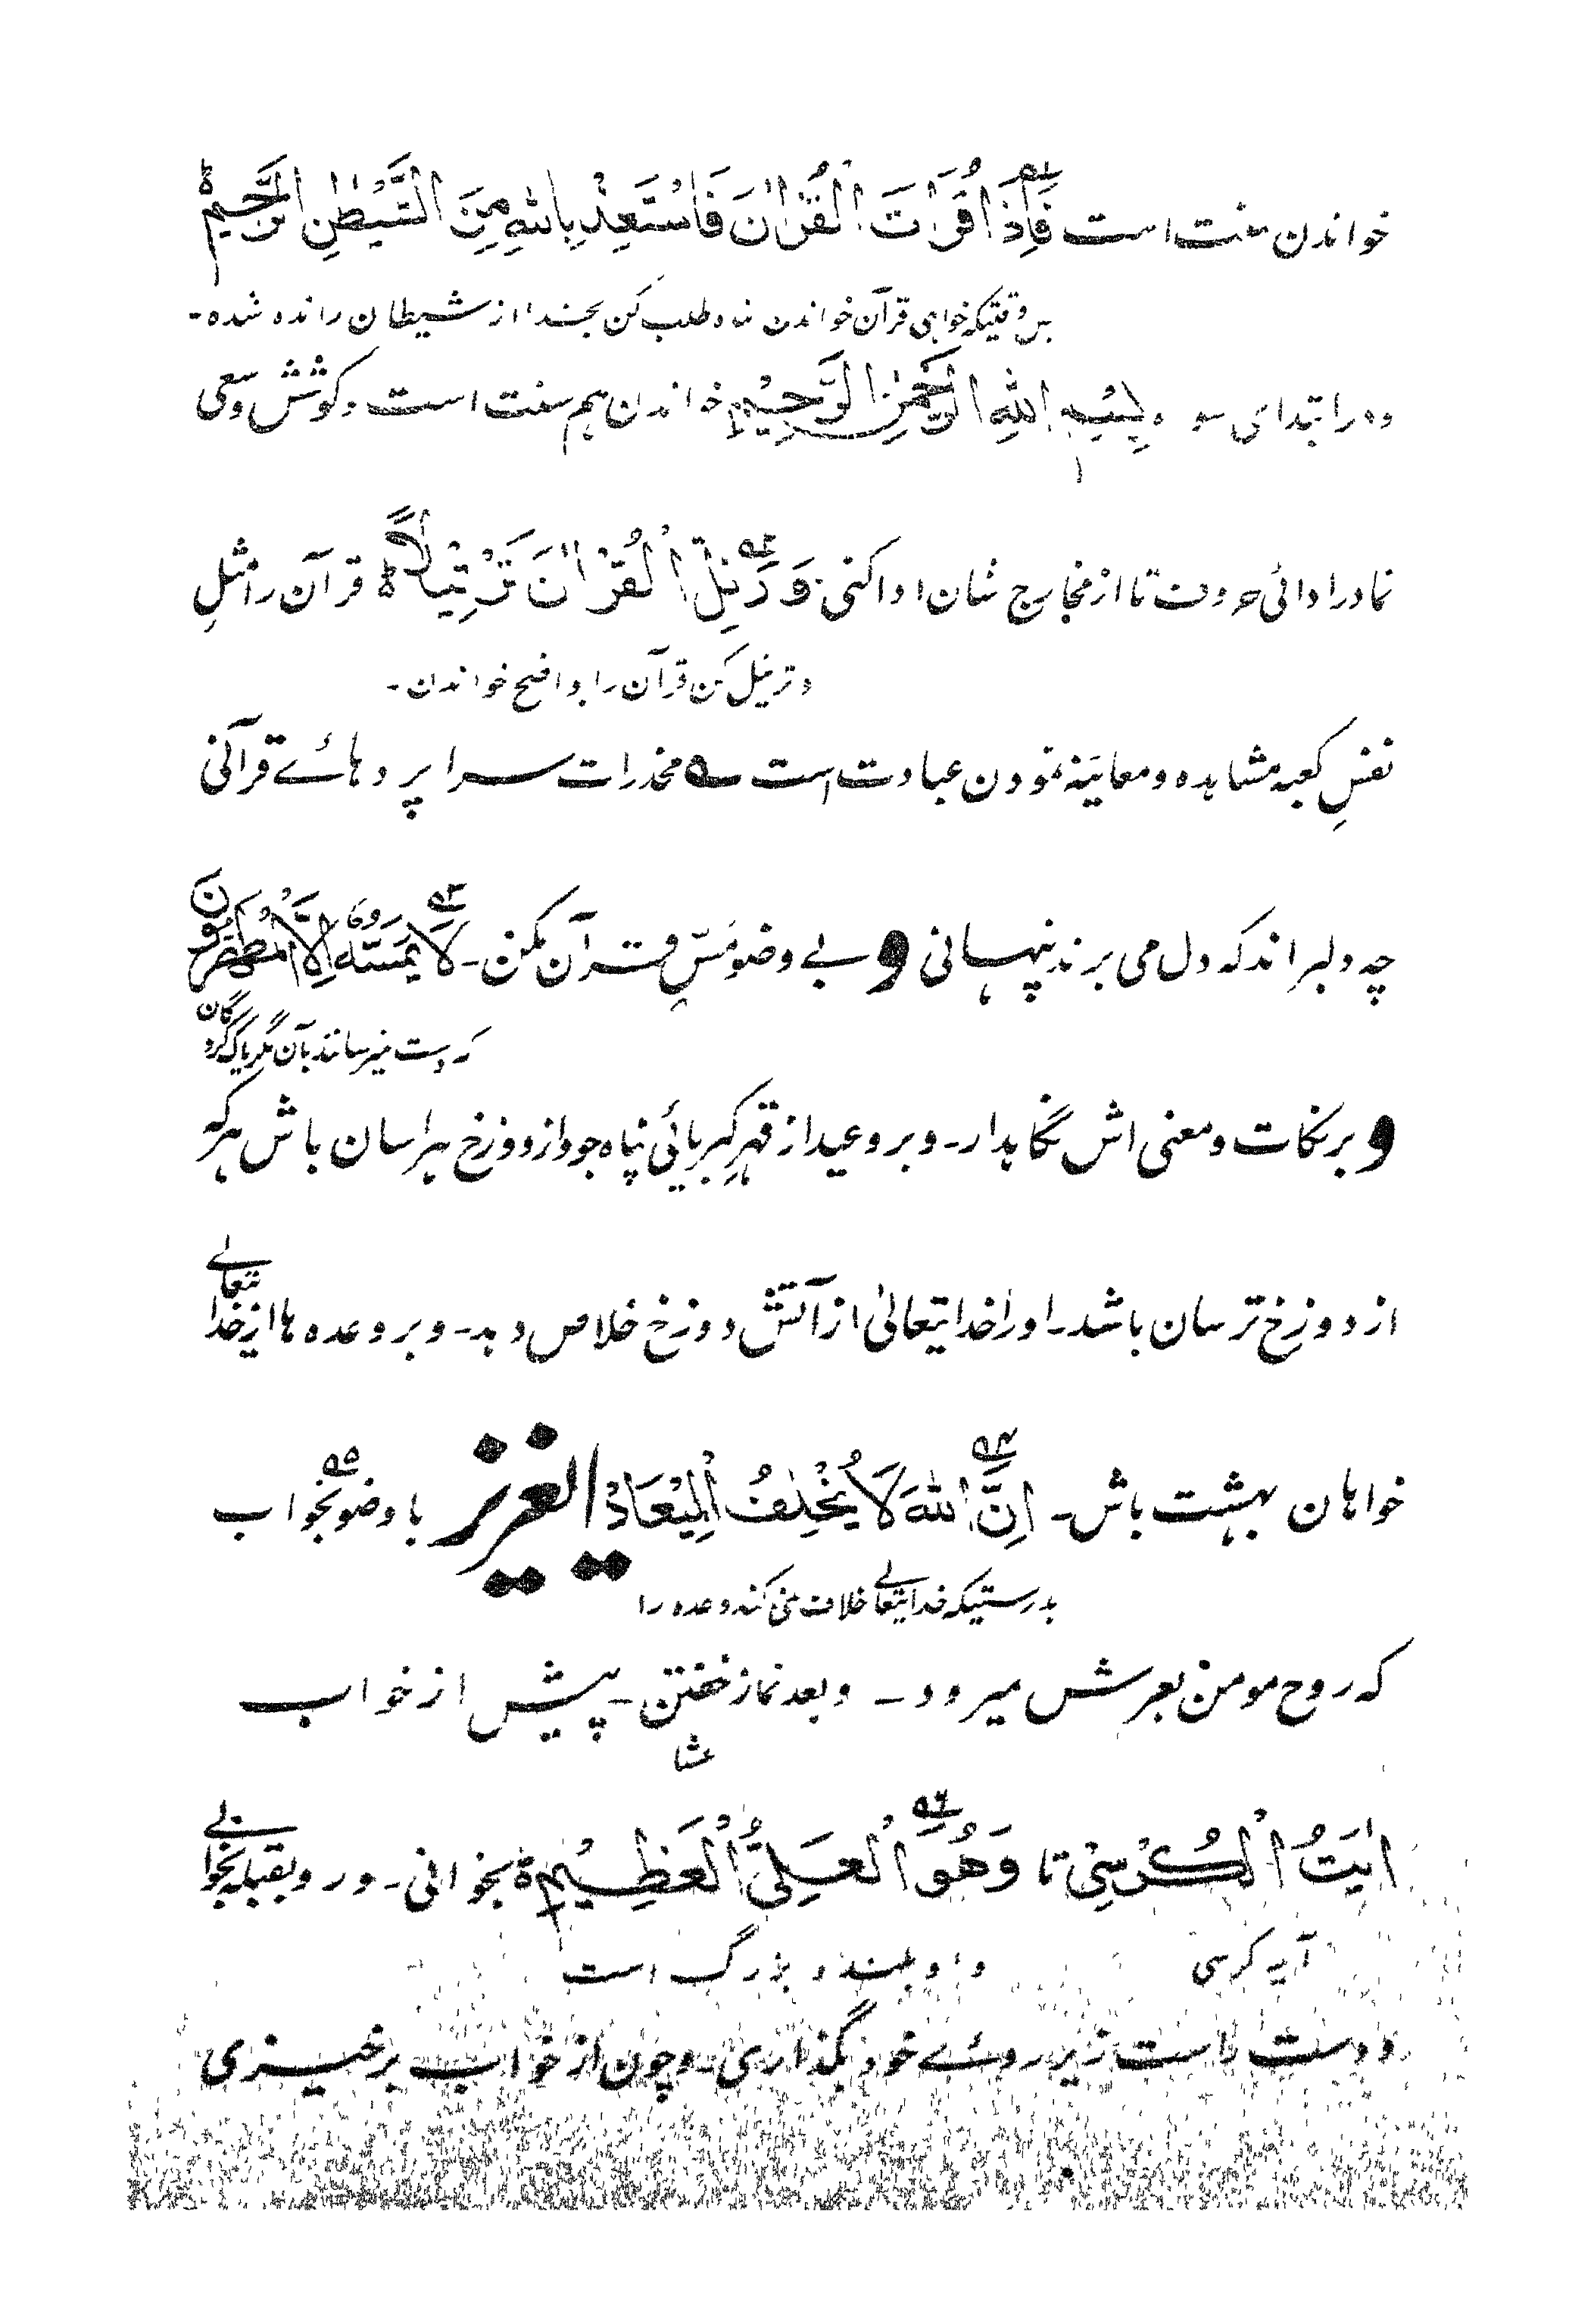 خواندن سنت است فَاِذَا قَرَاْتَ الْقُرْاٰنَ فَاسْتَعِذْ بِاللّٰهِ مِنَ الشَّیْطٰنِ الرَّجِیْمِ ؕ
وقتیکه خواهی قرآن خواندن پناه طلب کن بخدا از شیطان رانده شده -
و در ابتدای سو بِسْمِ اللّٰهِ الرَّحْمٰنِ الرَّحِیْمِ خواندن هم سنت است و کوشش و سعی
نما در ادائی حروف تا از مخارج شان ادا کنی وَ رَتِّلِ الْقُرْاٰنَ تَرْتِیْلًا ؕ قرآن را مثلِ
و ترتیل کن قرآن را و اضح خواندن -
نفسِ کعبه مشاهده و معاینه نمودن عبادت است ے مخدرات سرا پردهائے قرآنی
چه دلبر اند که دل می برند پنهانی و بے وضو مسِّ قرآن مکن - لَا یَمَسُّهٗۤ اِلَّا الْمُطَهَّرُوْنَ
که دست نمیرسانند بآن مگر پاک کردگان
و بر نکات و معنی اش نگاهدار - و بر وعید از قهرِ کبریائی پناه جو و از دوزخ هراسان باش هر که
از دوزخ ترسان باشد - اورا خدایتعالیٰ از آتش دوزخ خلاص دهد - و بر وعده ها از خدا تعالے
خواهان بهشت باش - اِنَّ اللّٰهَ لَا یُخْلِفُ الْمِیْعَادْ ایعزیز باوضو بخواب
بدرستیکه خدایتعالے خلاف نمی کند وعده را
که روح مومن بعرش میرود - وبعد نماز خفتن - پیش از خواب
عشا
اٰیَتُ الْکُرْسِیْ تا وَهُوَ الْعَلِیُّ الْعَظِیْمُ ؕ بخوانی - و رو بقبله بخوابے
آیه کرسی و او بلند و بزرگ است
و دست راست زیر روئے خود بگذاری - و چون از خواب برخیزی